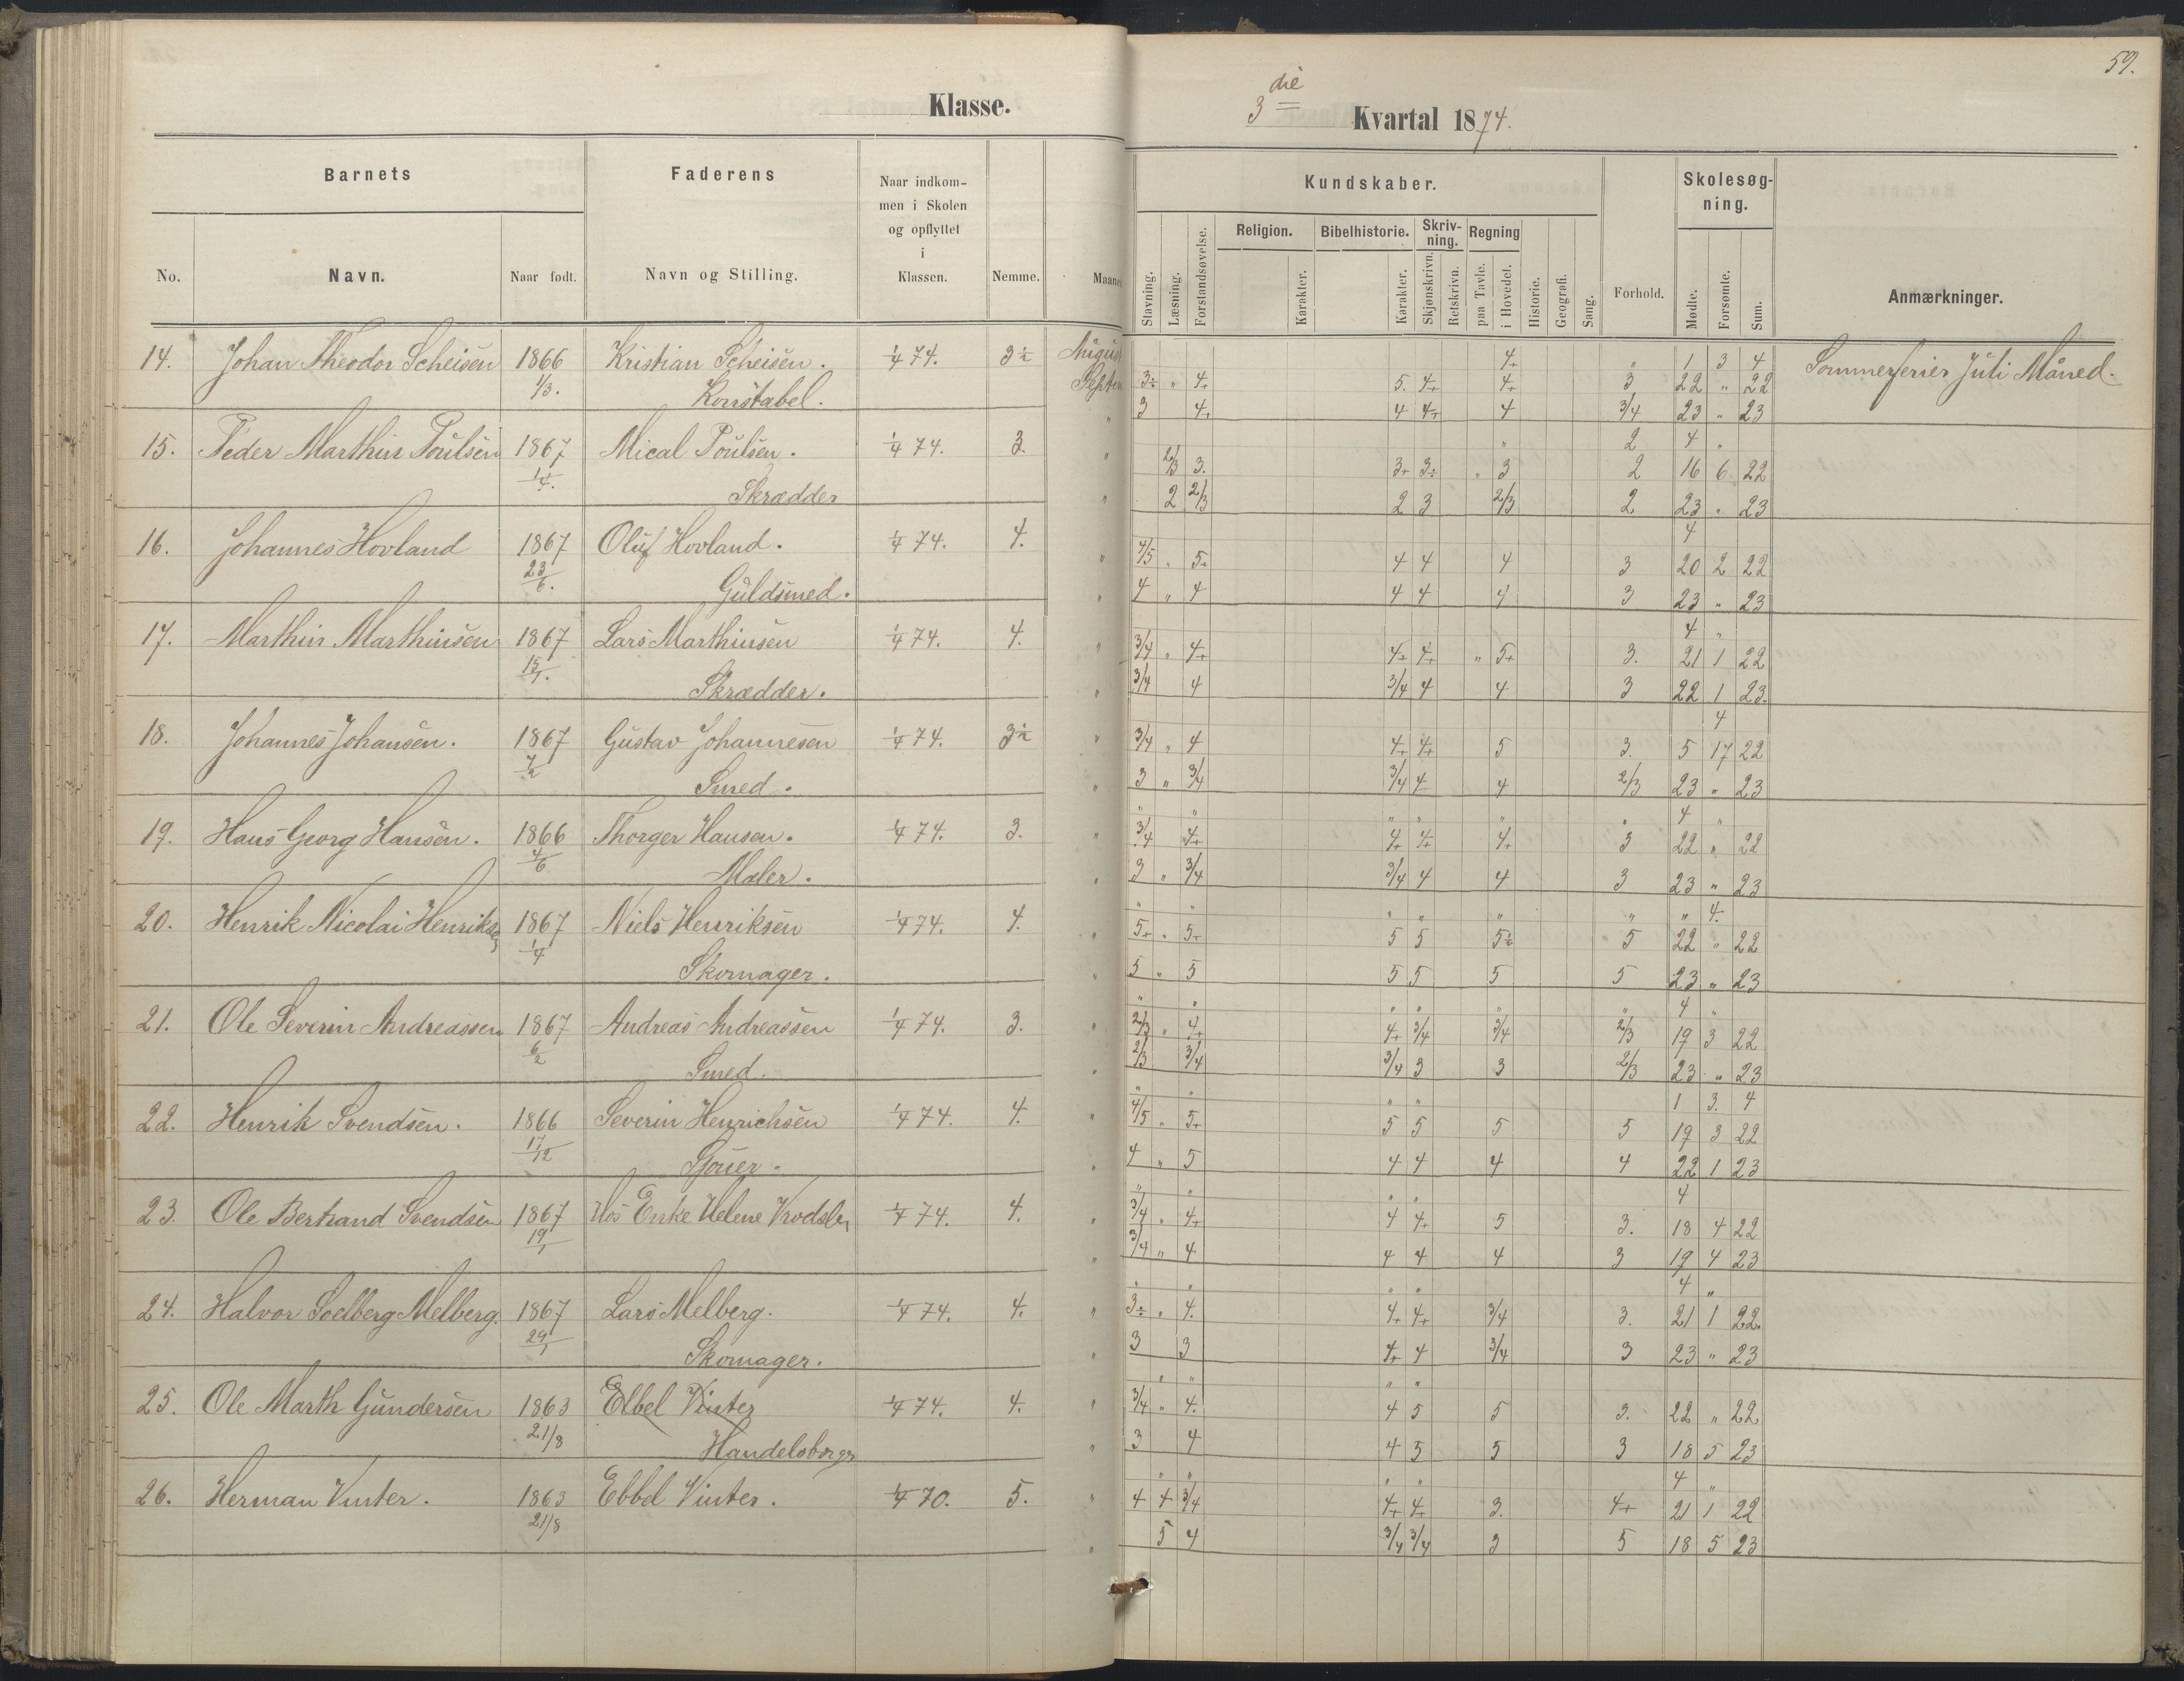 59.
Klasse.
3 die Kvartal 1874.
Barnets
Faderens
Naar indkommen i Skolen og opflyttet i Klassen.
Nemme.
Maaned
Kundskaber.
Forhold.
Skolesøgning.
Anmærkninger.
No.
Navn.
Naar født.
Navn og Stilling.
Stavning. Læsning. Forstandsøvelse.
Religion. Karakter.
Bibelhistorie. Karakter.
Skrivning. Skjønskrivn. Retskrivn.
Regning paa Tavle. i Hovedet.
Historie. Geografi. Sang.
Mødte. Forsømte. Sum.
14. Johan Theodor Scheisen 1866 1/3. Kristian Scheisen. 1/4 74. 3÷ August 4+ " 1 3 4 Sommerferier Juli Måned.
Konstabel. Septem 3÷ " 4+ 5. 4+ 4+ 3 22 " 22
" 3 4+ 4 4+ 4 3/4 23 " 23
15. Peder Marthin Poulsen 1867 1/4. Mical Poulsen. 1/4 74. 3. " 2 4 "
2/3 3. 3+ 3÷ " 3 2 16 6 22
Skrædder " 2 2/3 2 3 2/3 2 23 " 23
16. Johannes Hovland 1867 23/6. Oluf Hovland. 1/4 74. 4. 4
" 4/5 " 5÷ 4 4 4 3 20 2 22
Guldsmed. " 4 " 4 4 4 4 3 23 " 23
17. Marthin Marthinsen 1867 15/1. Lars Marthinsen 1/4 74. 4. 4 "
" 3/4 " 4+ 4+ 4+ " 5+ 3. 21 1 22
Skrædder. " 3/4 4 3/4 4 4 3 22 1 23.
18. Johannes Johansen. 1867 7/2 Gustav Johannesen 1/4 74. 3÷ 4
" 3/4 " 4 4+ 4+ 5 3. 5 17 22
Smed. " 3 " 3/4 3/4 4 4 2/3 23 " 23
19. Hans Georg Hansen. 1866 4/6 Thorger Hansen. 1/4 74. 3. " " " " " " 4 "
" 3/4 4+ 4+ 4+ 4+ 3 22 " 22
Maler. " 3 " 3/4 3/4 4 4 3 23 " 23
20. Henrik Nicolai Henriksen 1867 1/4 Niels Henriksen 1/4 74. 4. " " " " " " " 4.
" 5+ " 5+ 5 5 5÷ 5 22 " 22
Skomager. " 5 " 5 5 5 5 5 23 " 23
21. Ole Severin Andreassen 1867 6/2 Andreas Andreassen 1/4 74. 3. " " " " " " 4 "
" 2/3 " 4+ 4+ 3/4 3/4 2/3 19 3 22
Smed. " 2/3 3/4 3/4 3 3 2/3 23 " 23
22. Henrik Svendsen. 1866 17/12 Severin Henrichsen 1/4 74. 4. " " " " 1 3. 4
" 4/5 " 5+ 5 5 5 5 19 3 22
Sjouer. " 4 " 5 4 4 4 4 22 1 23
23. Ole Bertrand Svendsen 1867 19/1 Hos Enke Helene 1/4 74. 4. " " " " 4
" 3/4 " 4+ 4 4+ 5 3. 18 4 22
" 3/4 " 4 4 4 4 3 19 4 23
24. Halvor Soelberg Melberg. 1867 29/1 Lars Melberg. 1/4 74. 4. " " " " 4 "
" 3÷ " 4. 4+ 4+ 3/4 3. 21 1 22.
Skomager. " 3 3 4+ 4 3/4 3 23 " 23
25. Ole Marth Gundersen 1863 21/8 Ebbel Vinter 1/4 74. 4. " " " "
3/4 " 4. 4 5 5 3. 22 " 22
Handelsborger " 3 4 4 5 5 3 18 5 23
26. Herman Vinter. 1863 21/8 Ebbel Vinter. 1/4 70. 5. " " " " 4 "
" 4 4 3/4 4+ 4+ 3. 4+ 21 1 22
" 5 4 3/4 3/4 3 5 18 5 23